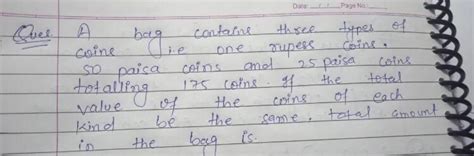 Date: / / Page No:
Ques A bag contains three types of
coins i.e one rupess coins.
50 paisa coins and 25 paisa coins
totalling 175 coins. If the total
value of the coins of each
kind be the same. total amount
in the bag is.